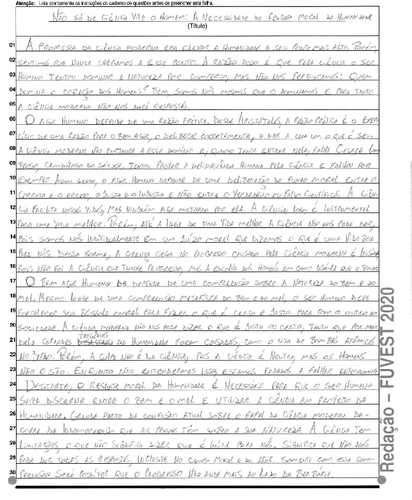 Atenção: Leia atentamente as instruções do caderno de questões antes de preencher esta folha.
Não só de Ciência Vive o Homem: A Necessidade do Resgate Moral da Humanidade
(Título)
01 A promessa da ciência moderna era elevar a Humanidade a seu ponto mais alto. Porém,
02 sentimos que nunca chegamos a esse ponto. A razão disso é que pela ciência o ser
03 Humano tentou dominar a natureza por completo, mas não nos perguntamos: Quem
04 domina o coração dos Homens? Bem somos nós mesmos que o dominamos e para tanto
05 a ciência moderna não nos dará respostas.
06 O agir Humano depende de uma razão prática. Desde Aristóteles, a razão prática é o exer
07 cício de uma razão para o bem agir, o deliberar corretamente, o dar a cada um o que é seu.
08 A ciência moderna não pertence a esse domínio e, quando tenta entrar nele, falha. Cesare Lom
09 broso, criminólogo do século XIX, tentou provar a delinquência humana pela ciência e falhou por
10 exemplo. Assim sendo, o agir Humano depende de uma deliberação de fundo moral entre o
11 correto e o errado, o justo e o injusto e não entre o verdadeiro ou falso científicos. A ciên
12 cia facilita nossas vidas, mas ninguém age motivado por ela. A ciência, logo, é instrumental
13 para uma vida melhor. Porém, até a ideia de uma vida melhor a ciência não nos pode dar,
14 pois somos nós individualmente em um juízo moral que dizemos o que é uma vida boa
15 para nós. Dessa forma, a crença cega no progresso causado pela ciência moderna é ilusória
16 pois não foi a ciência que
17 O bem agir Humano
18 mal. Mesmo longe de uma compreensão metafísica do bem e do mal, o ser Humano deve
19 fortalecer seu resgate moral para fazer o que é certo e justo para com o outro em
20 sociedade. A ciência moderna não nos pode dizer o que é justo ou certo, tanto que por meio
21 dela grandes tragédias da Humanidade foram causadas, como o uso de bombas atômicas
22 no Japão. Porém, a culpa não é da ciência, pois a ciência é neutra, mas os Homens
23 não o são. Enquanto não entendermos isso, estamos fadados a falhar
24 Destarte, o resgate moral da Humanidade é necessário para que o ser Humano
25 saiba discernir entre o bem e o mal e utilizar a ciência em proveito da
26 Humanidade. Grande parte da confusão atual sobre o papel da ciência moderna de-
27 corre da incompreensão que as pessoas têm sobre a sua natureza. A ciência tem
28 limitações, o que não significa dizer que é inútil para nós. Significa que não nos
29 pode dar todas as respostas, inclusive no campo moral e do agir. Somente com essa com-
30 preensão será possível que o progresso não ande mais ao lado da barbárie.
Redação – FUVEST 2020